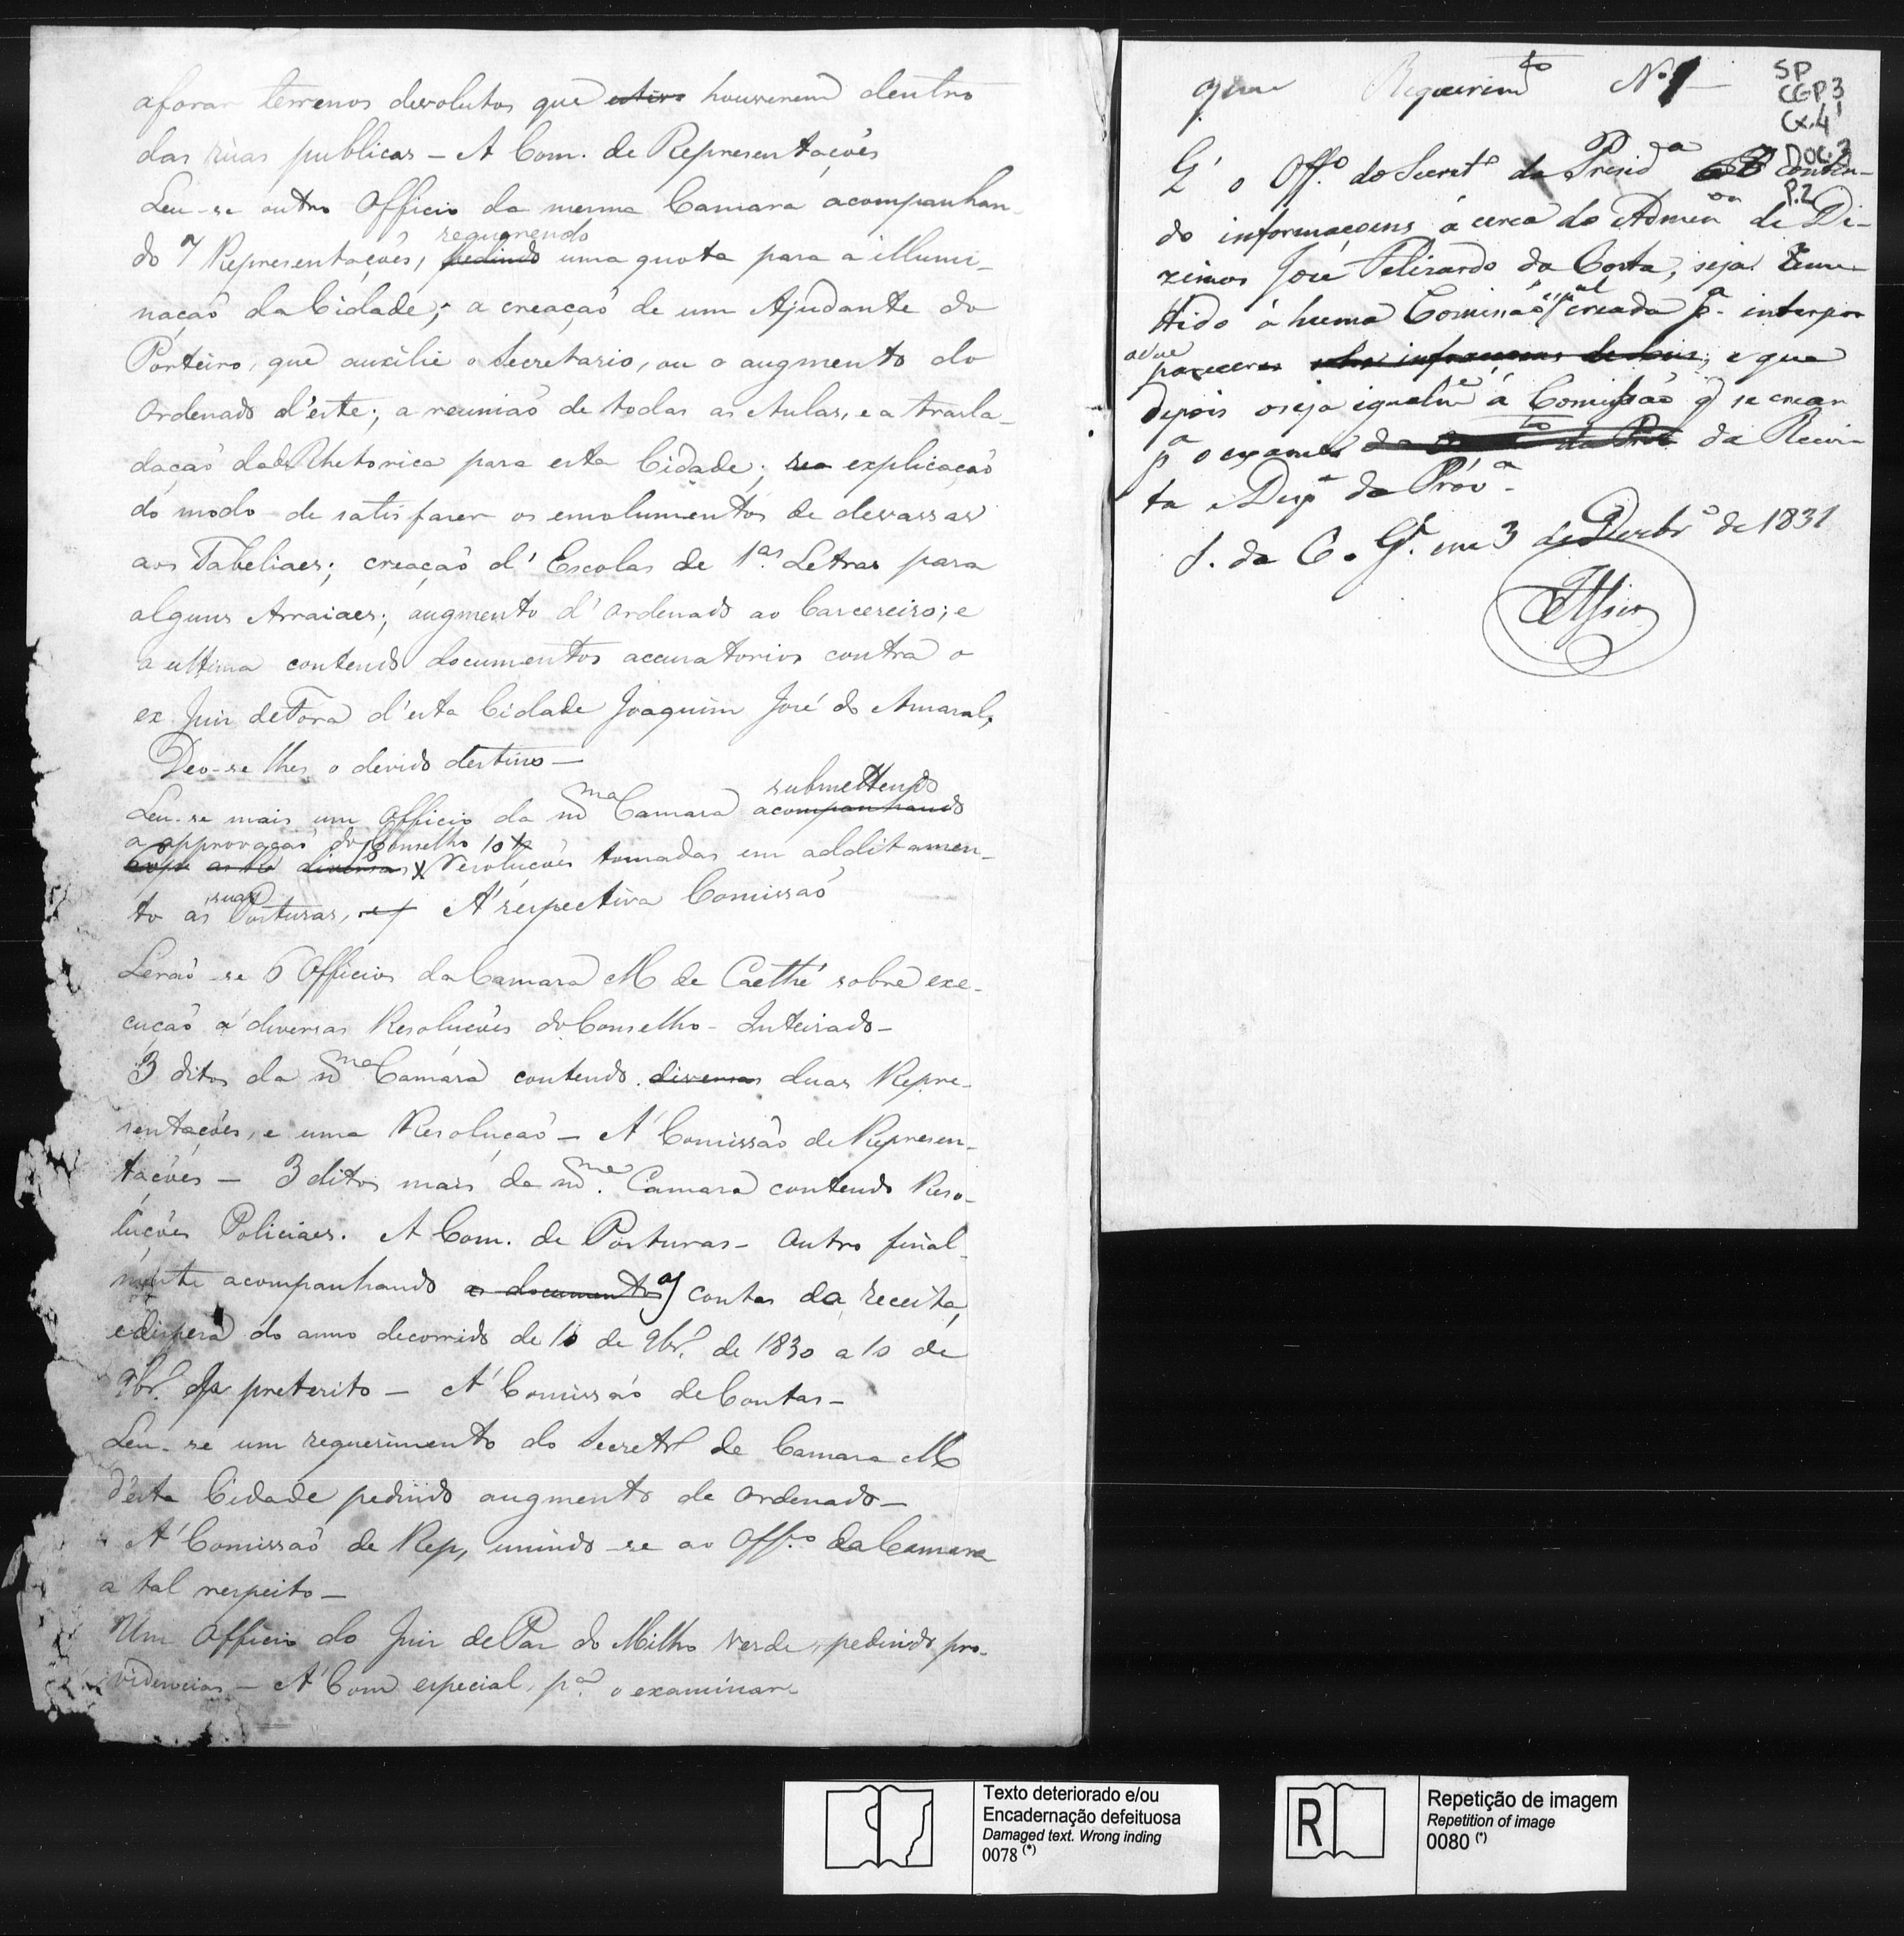 aforar terrenos devolutos que houverem dentro
das rùas publicas – A Com. de Representaçoẽs
Leu-se outro Officio da mesma Camara acompanhan-
do 7 Representaçoẽs, requerendo uma quota para a illumi-
naçaõ da Cidade; a creaçaõ de um Ajudante do
Porteiro, que auxilie o Secretario, ou o augmento do
Ordenado d'este; a reuniaõ de todas as Aulas, e a trasla-
daçaõ da de Rhetorica para esta Cidade; explicaçaõ
do modo de satisfazer os emolumentos de devassas
aos Tabeliaes; creaçaõ d'Escolas de 1as Letras para
alguns Arraiaes; augmento d'ordenado ao Carcereiro; e
a ultima contendo documentos accusatorios contra o
ex Juiz de Fora d'esta Cidade Joaquim José do Amaral,
Deo-se lhes o devido destino –
Leu-se mais um Officio da mma Camara submettendo
a approvaçaõ do Conselho 10 Resoluçoẽs tomadas em additamen-
to as suas Posturas, A' respectiva Comissaõ
Leraõ-se 6 Officios da Camara M de Caethé sobre exe-
cuçaõ a diversas Resoluçoẽs do Conselho – Inteirado –
3 ditos da mma Camara contendo diversas duas Repre-
sentaçoẽs, e uma Resoluçaõ – A' Comissão de Represen-
taçoẽs – 3 ditos mais da mma Camara contendo Reso-
luçoẽs Policiaes. A Com. de Posturas – Outro final-
mente acompanhando os documentos as contas da receita,
e dispesa do anno decorrido de 10 de 9br. de 1830 a 10 de
9br. pr preterito – A' Comissaõ de Contas –
Leu-se um requerimento do Secretro da Camara M
d'esta Cidade pedindo augmento de ordenado –
A' Comissaõ de Rep, unindo-se ao Offo da Camara
a tal respeito –
Um Officio do Juiz de Paz do Milho Verde, pedindo pro-
videncias – A' Com especial, pa o examinar
Requerimto No 1
SP
CGP3
Cx.4
DOC.3
P.2
q' o Offo do Secreto da Presida conten-
do informaçoens á cerca do Admenor de Di-
zimos José Felizardo da Costa, seja reme-
ttido á huma Comissaõ espeal creada pa interpor
o seu parecer sobre infraçoens de Leis; e que
depois o seja igualme á Comissaõ q se crear
pa o exame da Recei-
ta e Despa da Prova
S. da C. G. em 3 de Dezbro de 1831
Texto deteriorado e/ou
Encadernação defeituosa
Damaged text. Wrong inding
0078 (*)
R
Repetição de imagem
Repetition of image
0080 (*)